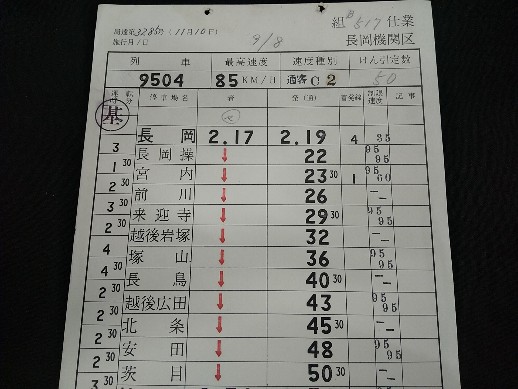 組 B517 仕業
局達第3285号(11月10日)
施行月/日 9/8 長岡機関区
列車 最高速度 速度種別 けん引定数
9504 85KM/H 通客C2 50
運転時分 停車場名 着 発(通) 着発線 制限速度 記事
基
長岡 2.17 2.19 4 35
3 長岡操 ↓ 22 95 95
1 30 宮内 ↓ 23 30 1 95 60
2 30 前川 ↓ 26 - -
3 30 来迎寺 ↓ 29 30 95 95
2 30 越後岩塚 ↓ 32 - -
4 塚山 ↓ 36 95 95
4 30 長鳥 ↓ 40 30 - -
2 30 越後広田 ↓ 43 95 95
2 30 北条 ↓ 45 30 - -
2 30 安田 ↓ 48 95 95
2 30 茨目 ↓ 50 30 - -
3